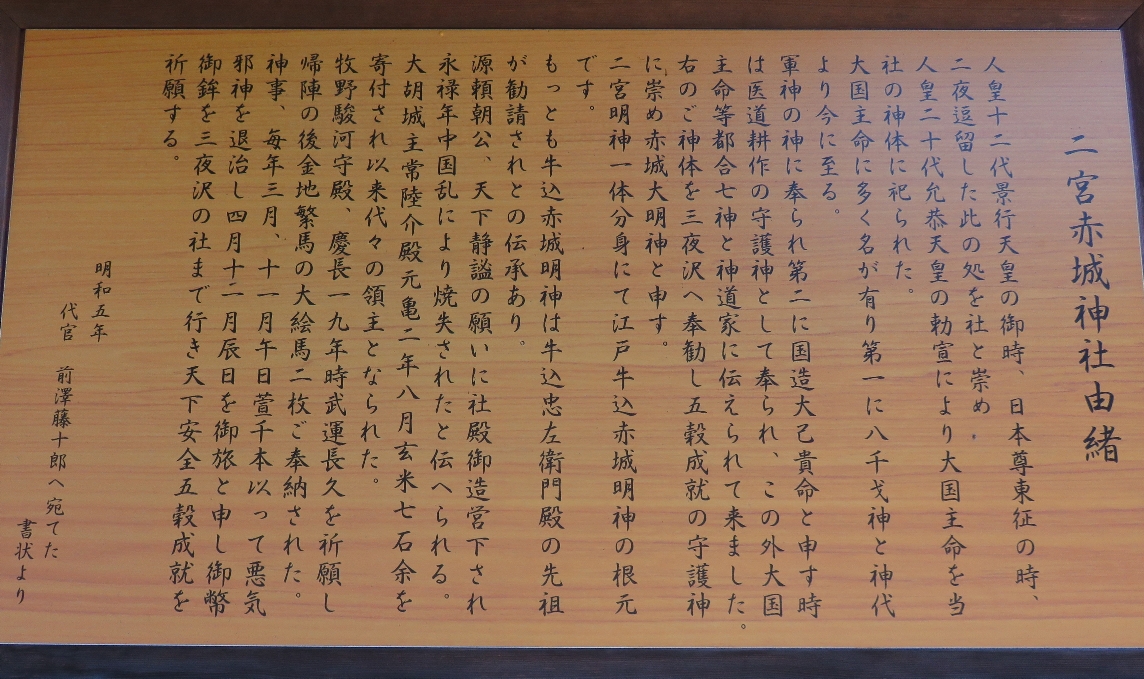 二宮赤城神社由緒
人皇十二代景行天皇の御時、日本尊東征の時、
二夜逗留した此の処を社と崇め
人皇二十代允恭天皇の勅宣により大国主命を当
社の神体に祀られた。
大国主命に多く名が有り第一に八千戈神と神代
より今に至る。
軍神の神に奉られ第二に国造大己貴命と申す時
は医道耕作の守護神として奉られ、この外大国
主命等都合七神と神道家に伝えられて来ました。
右のご神体を三夜沢へ奉勧し五穀成就の守護神
に崇め赤城大明神と申す。
二宮明神一体分身にて江戸牛込赤城明神の根元
です。
もっとも牛込赤城明神は牛込忠左衛門殿の先祖
が勧請されとの伝承あり。
源頼朝公、天下静謐の願いに社殿御造営下され
永禄年中国乱により焼失されたと伝へられる。
大胡城主常陸介殿元亀二年八月玄米七石余を
寄付され以来代々の領主となられた。
牧野駿河守殿、慶長一九年時武運長久を祈願し
帰陣の後金地繁馬の大絵馬二枚ご奉納された。
神事、毎年三月、十一月午日萱千本以って悪気
邪神を退治し四月十二月辰日を御旅と申し御幣
御鉾を三夜沢の社まで行き天下安全五穀成就を
祈願する。
明和五年
代官　前澤藤十郎へ宛てた
書状より